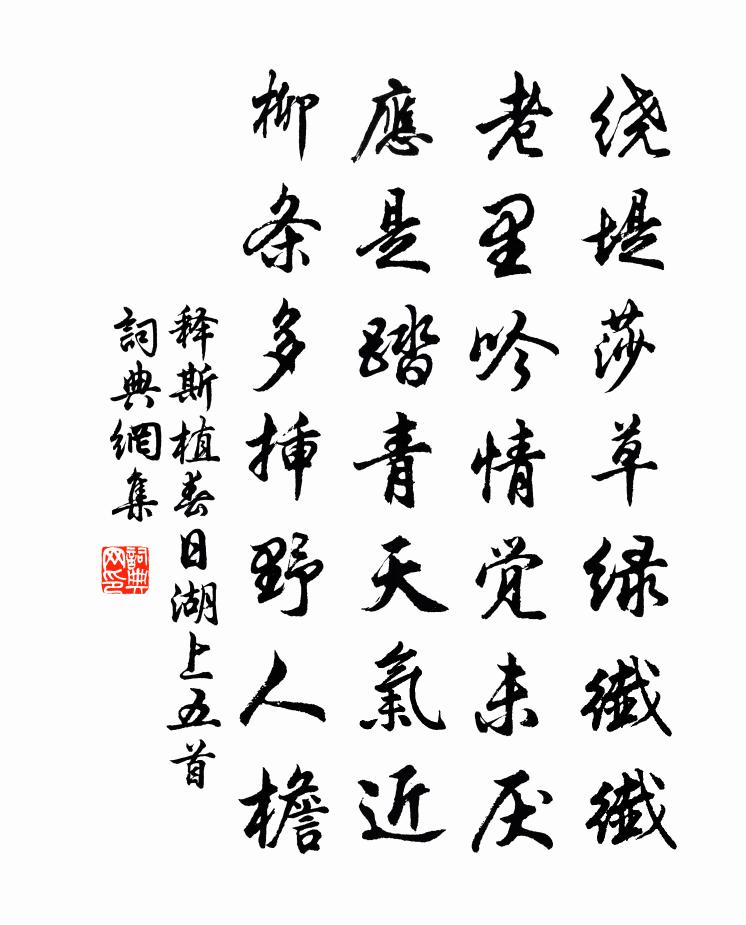 绕堤莎草绿纖纖
老里吟情觉未厌
應是踏青天氣近
柳条多挿野人檐
释斯植春日湖上五首
詞典網集
詞典网印